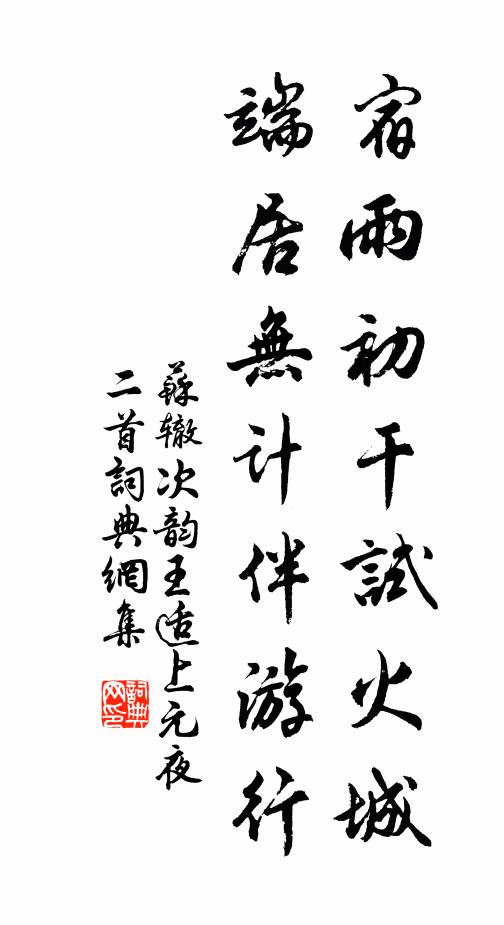 宿雨初干試火城
端居無計伴游行
蘇辙次韵王适上元夜
二首詞典網集
詞典网印